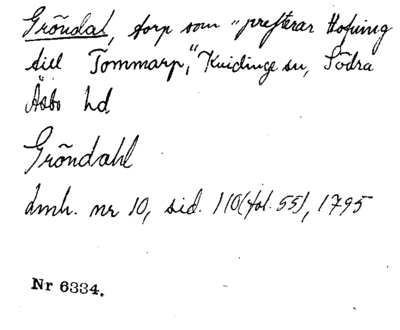 Gröndal, torp som "presterar Hofning
till Tommarp", Kvidinge sn, Södra
Åsbo hd
Gröndahl
dmh. nr 10, sid. 110 (fol. 55), 1795
Nr 6334.